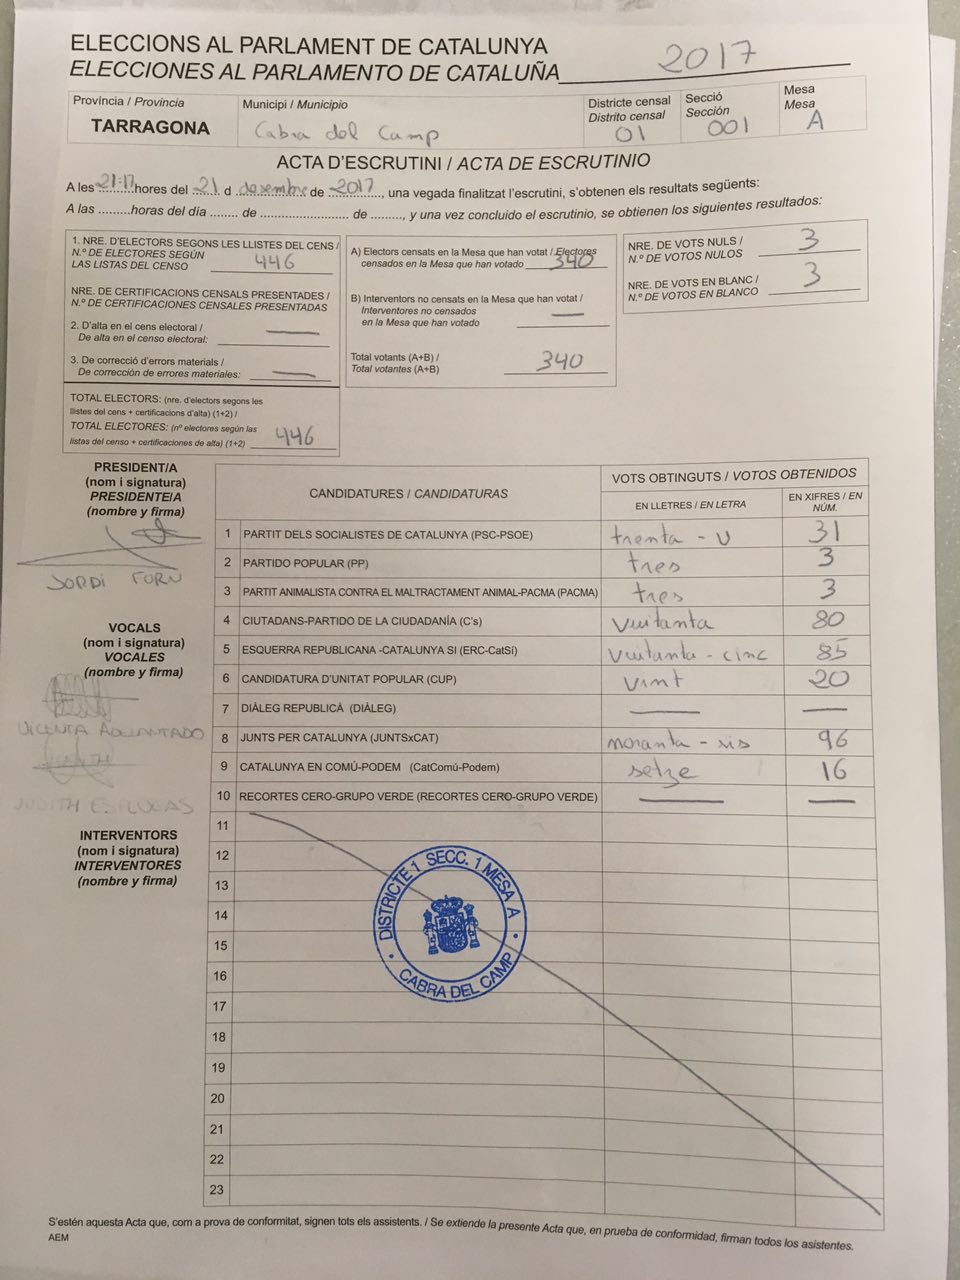 ELECCIONS AL PARLAMENT DE CATALUNYA
ELECCIONES AL PARLAMENTO DE CATALUÑA 2017
Província / Provincia
TARRAGONA
Municipi / Municipio
Cabra del Camp
Districte censal
Distrito censal
01
Secció
Sección
001
Mesa
Mesa
A
ACTA D'ESCRUTINI / ACTA DE ESCRUTINIO
A les 21:17 hores del 21 d desembre de 2017, una vegada finalitzat l'escrutini, s'obtenen els resultats següents:
A las .........horas del día ........ de ......................... de ........., y una vez concluido el escrutinio, se obtienen los siguientes resultados:
1. NRE. D'ELECTORS SEGONS LES LLISTES DEL CENS /
N.º DE ELECTORES SEGÚN
LAS LISTAS DEL CENSO 446
NRE. DE CERTIFICACIONS CENSALS PRESENTADES /
N.º DE CERTIFICACIONES CENSALES PRESENTADAS
2. D'alta en el cens electoral /
De alta en el censo electoral: —
3. De correcció d'errors materials /
De corrección de errores materiales: —
TOTAL ELECTORS: (nre. d'electors segons les
llistes del cens + certificacions d'alta) (1+2) /
TOTAL ELECTORES: (nº electores según las
listas del censo + certificaciones de alta) (1+2) 446
A) Electors censats en la Mesa que han votat / Electores
censados en la Mesa que han votado 340
B) Interventors no censats en la Mesa que han votat /
Interventores no censados
en la Mesa que han votado —
Total votants (A+B) /
Total votantes (A+B) 340
NRE. DE VOTS NULS /
N.º DE VOTOS NULOS 3
NRE. DE VOTS EN BLANC /
N.º DE VOTOS EN BLANCO 3
PRESIDENT/A
(nom i signatura)
PRESIDENTE/A
(nombre y firma)
JORDI TORN
VOCALS
(nom i signatura)
VOCALES
(nombre y firma)
VICENTA ADELANTADO
JUDITH
INTERVENTORS
(nom i signatura)
INTERVENTORES
(nombre y firma)
CANDIDATURES / CANDIDATURAS
VOTS OBTINGUTS / VOTOS OBTENIDOS
EN LLETRES / EN LETRA
EN XIFRES / EN NÚM.
1 PARTIT DELS SOCIALISTES DE CATALUNYA (PSC-PSOE) trenta - u 31
2 PARTIDO POPULAR (PP) tres 3
3 PARTIT ANIMALISTA CONTRA EL MALTRACTAMENT ANIMAL-PACMA (PACMA) tres 3
4 CIUTADANS-PARTIDO DE LA CIUDADANÍA (C's) vuitanta 80
5 ESQUERRA REPUBLICANA -CATALUNYA SI (ERC-CatSí) vuitanta - cinc 85
6 CANDIDATURA D'UNITAT POPULAR (CUP) vint 20
7 DIÀLEG REPUBLICÀ (DIÀLEG) — —
8 JUNTS PER CATALUNYA (JUNTSxCAT) noranta - sis 96
9 CATALUNYA EN COMÚ-PODEM (CatComú-Podem) setze 16
10 RECORTES CERO-GRUPO VERDE (RECORTES CERO-GRUPO VERDE) — —
11
12
13
14
15
16
17
18
19
20
21
22
23
DISTRICTE 1 SECC. 1 MESA A
CABRA DEL CAMP
S'estén aquesta Acta que, com a prova de conformitat, signen tots els assistents. / Se extiende la presente Acta que, en prueba de conformidad, firman todos los asistentes.
AEM